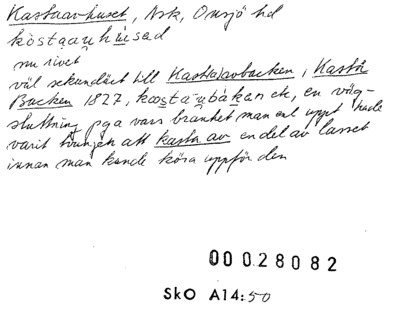 Kastaavhuset, Ask, Onsjö hd
kòstaau húsad
nu rivet
väl sekundärt till Kasta(av)backen, Kasta
Backen 1827, kosta-ubákan etc, en väg-
sluttning pga vars branhet man enl uppt hade
varit tvungen att kasta av en del av lasset
innan man kunde köra uppför den
000.28082
SkO A14:50